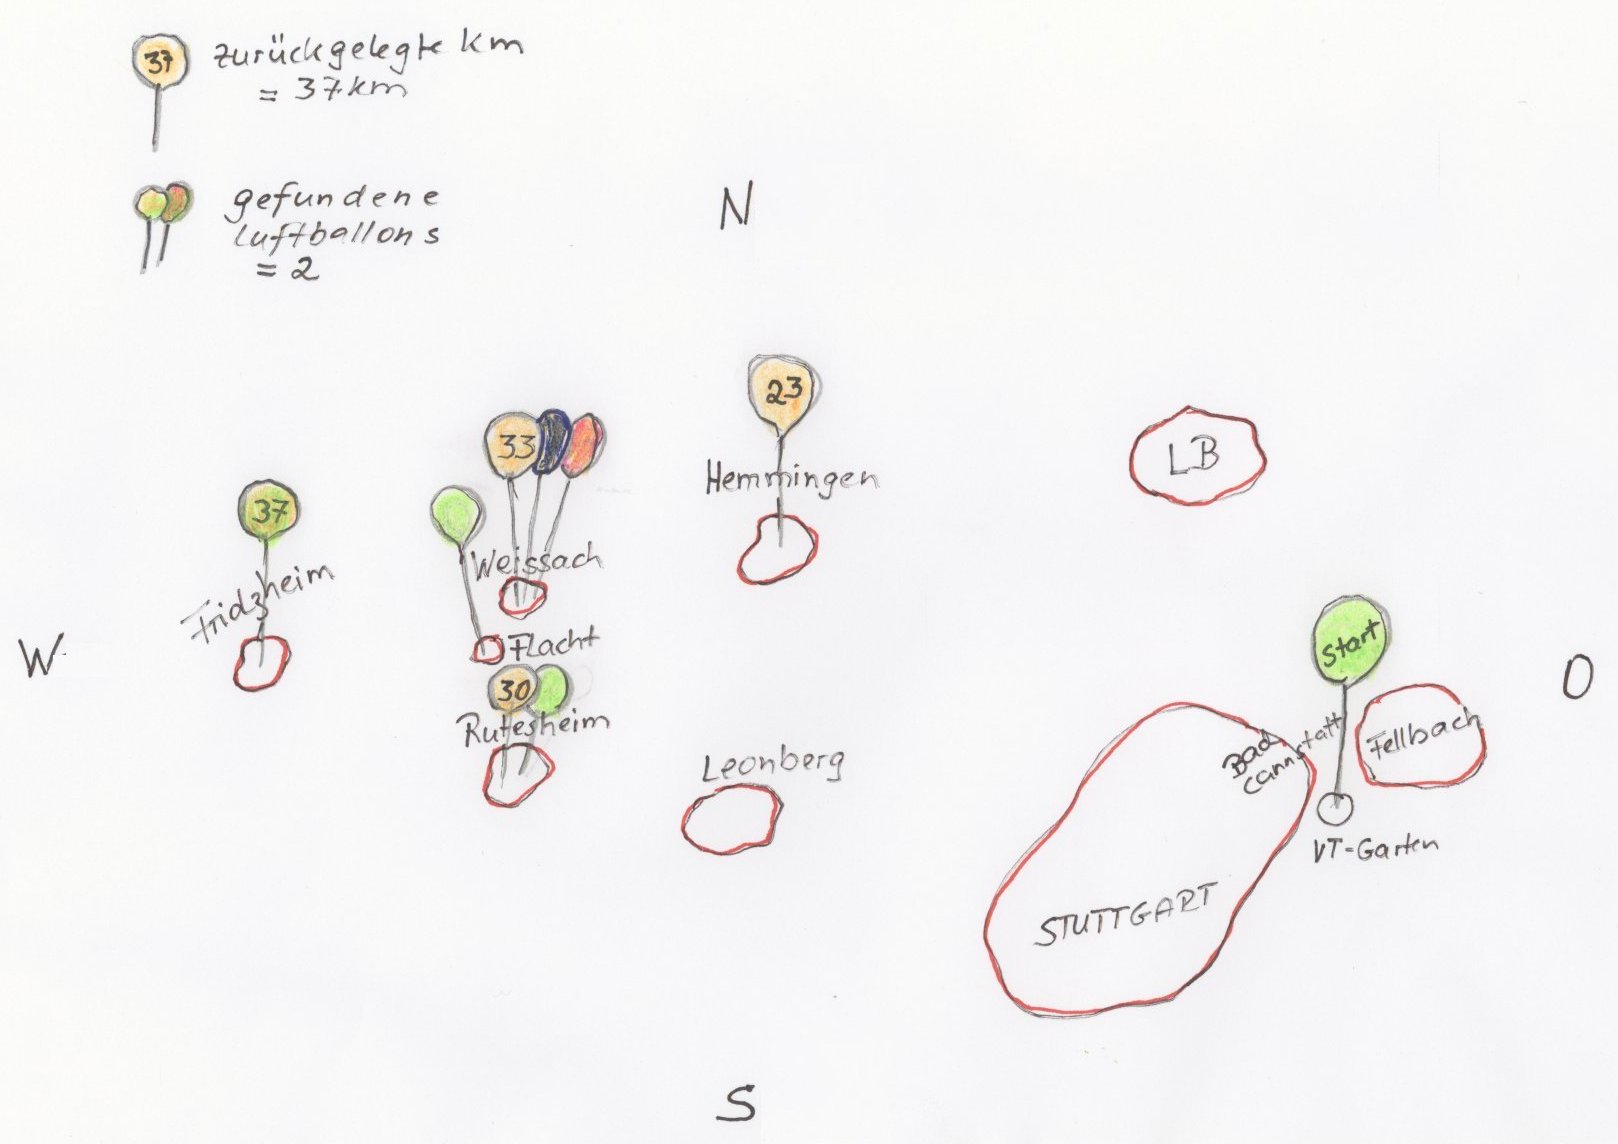 37 zurückgelegte km
= 37km
gefundene
Luftballons
= 2
N
23
33
Hemmingen
LB
37
Weissach
Fridzheim
Start
W
Flacht
O
30
Rutesheim
Bad
Cannstatt
Fellbach
Leonberg
VT-Garten
STUTTGART
S